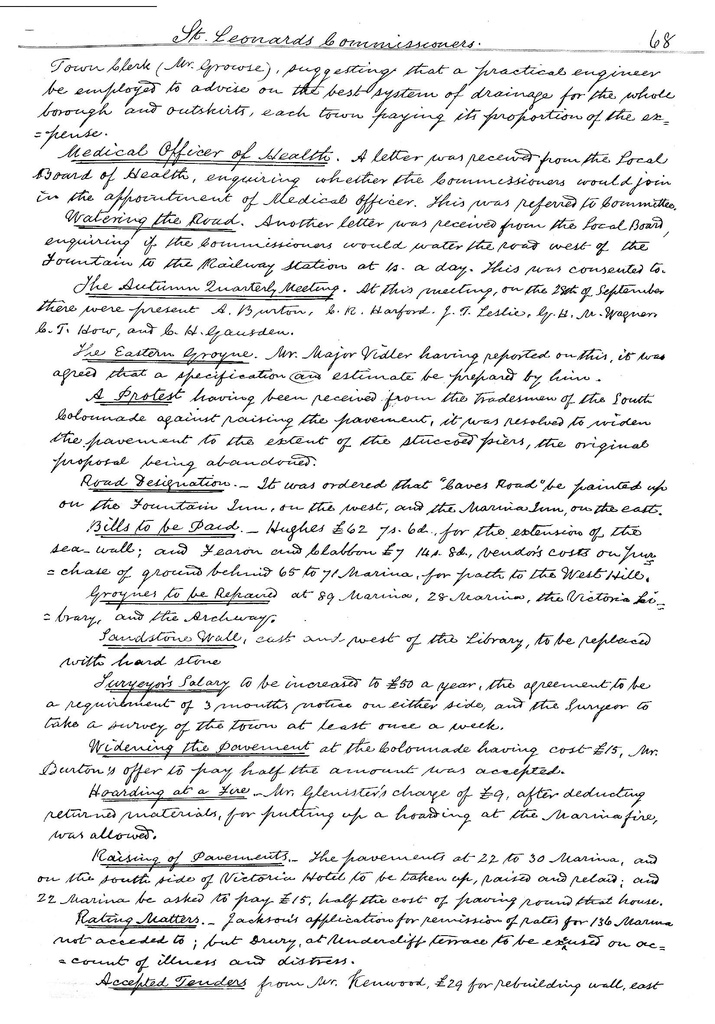 St. Leonards Commissioners. 68
Town Clerk (Mr. Growse), suggesting that a practical engineer
be employed to advise on the best system of drainage for the whole
borough and outskirts, each town paying its proportion of the ex=
=pense.
Medical Officer of Health. A letter was received from the Local
Board of Health, enquiring whether the Commissioners would join
in the appointment of Medical Officer. This was referred to Committee.
Watering the Road. Another letter was received from the Local Board,
enquiring if the Commissioners would water the road west of the
Fountain to the Railway Station at 1s. a day. This was consented to.
The Autumn Quarterly Meeting. At this meeting, on the 28th of September
there were present A. Burton, C. R. Harford. J. T. Leslie, G. H. M. Wagner
C. T. How, and C. H. Gausden.
The Eastern Groyne. Mr. Major Vidler having reported on this, it was
agreed that a specification and estimate be prepared by him.
A Protest having been received from the Tradesmen of the South
Colonnade against raising the pavement, it was resolved to widen
the pavement to the extent of the stuccoed piers, the original
proposal being abandoned.
Road Designation. - It was ordered that "Caves Road" be painted up
on the Fountain Inn, on the west, and the Marina Inn, on the east.
Bills to be Paid. - Hughes £62 7s. 6d., for the extension of the
sea-wall; and Fearon and Clabbon £7 14s. 8d., vendor's costs on pur=
=chase of ground behind 65 to 71 Marina, for path to the West Hill.
Groynes to be Repaired at 89 Marina, 28 Marina, the Victoria Li=
=brary, and the Archway.
Sandstone Wall, east and west of the Library, to be replaced
with hard stone
Surveyor's Salary to be increased to £50 a year, the agreement to be
a requirement of 3 months notice on either side, and the Surveyor to
take a survey of the town at least once a week.
Widening the Pavement at the Colonnade having cost £15, Mr.
Burton's offer to pay half the amount was accepted.
Hoarding at a Fire - Mr. Glenister's charge of £9, after deducting
returned materials, for putting up a hoarding at the Marina fire,
was allowed.
Raising of Pavements. - The pavements at 22 to 30 Marina, and
on the south side of Victoria Hotel to be taken up, raised and relaid; and
22 Marina be asked to pay £15, half the cost of paving round that house.
Rating Matters. - Jackson's application for remission of rates for 136 Marina
not acceded to; but Drury, at Undercliff terrace to be excused on ac=
=count of illness and distress.
Accepted Tenders from Mr. Kenwood, £29 for rebuilding wall, east